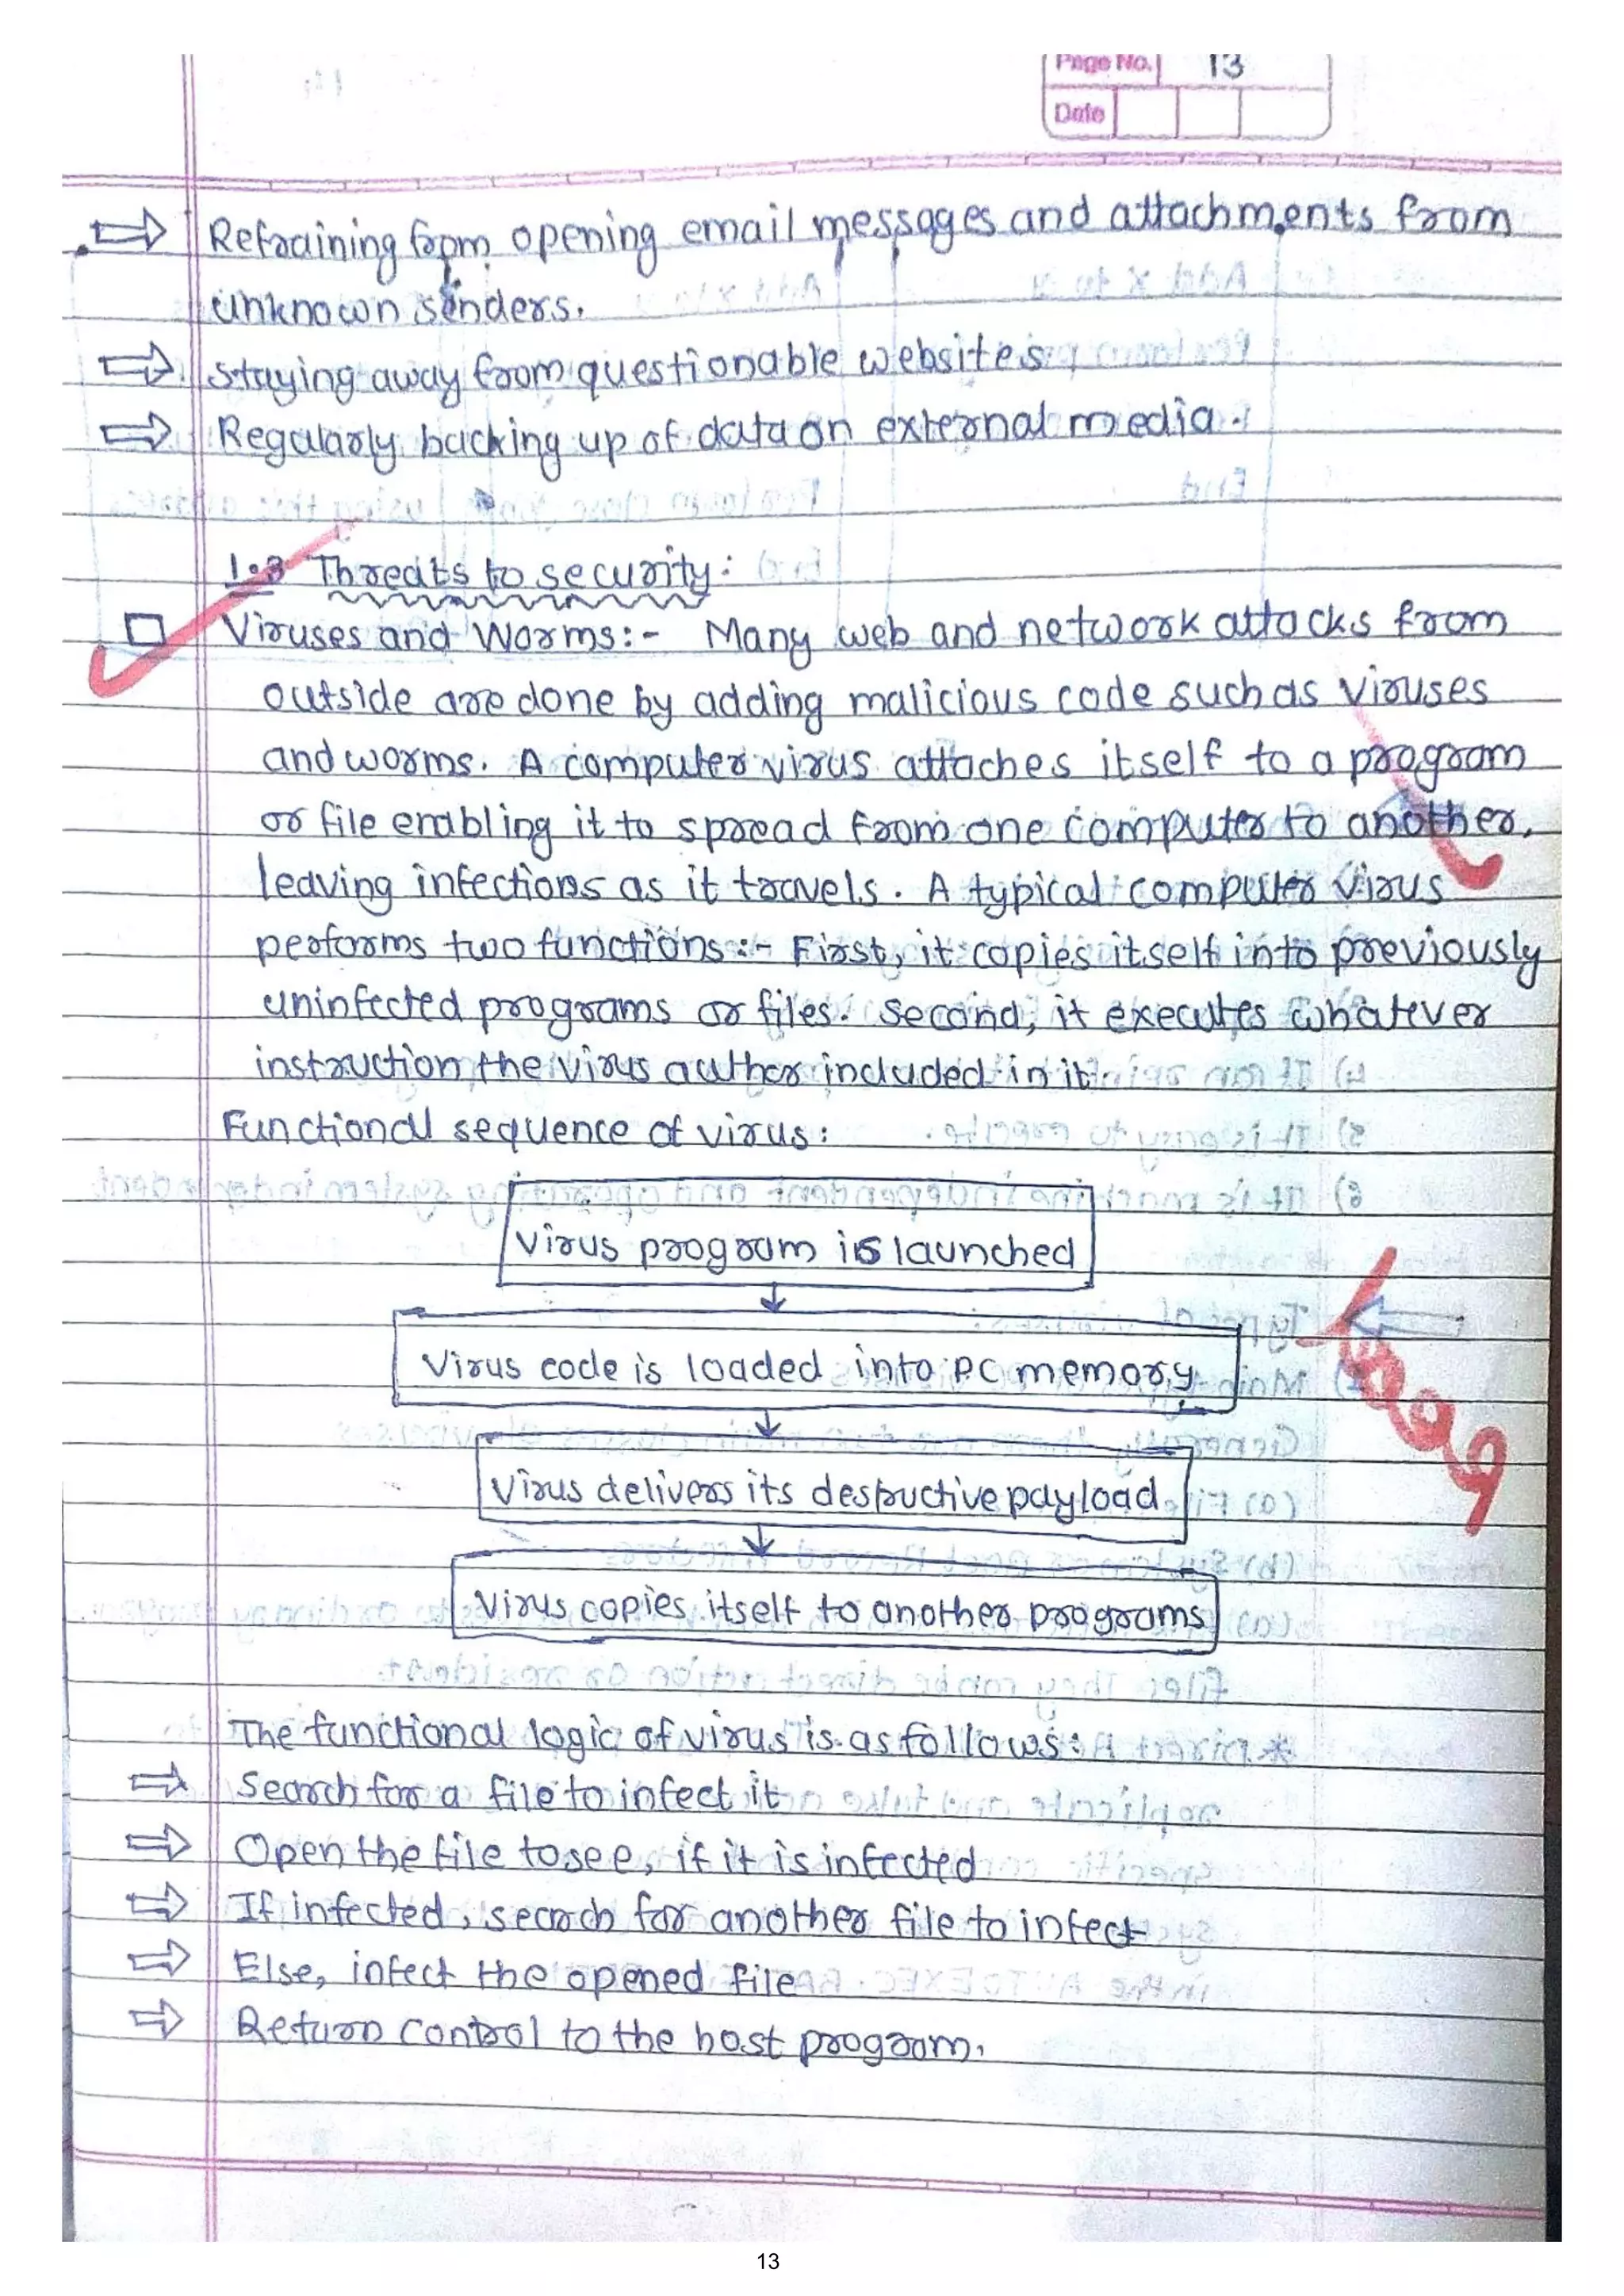 Page No. 13
Date
⇒ Refraining from opening email messages and attachments from
unknown senders.
⇒ staying away from questionable websites
⇒ Regularly backing up of data on external media.
1.3 Threats to security:
□ Viruses and Worms:- Many web and network attacks from
outside are done by adding malicious code such as Viruses
and worms. A computer virus attaches itself to a program
or file enabling it to spread from one computer to another,
leaving infections as it travels. A typical computer virus
performs two functions:- First, it copies itself into previously
uninfected programs or files. Second, it executes whatever
instruction the virus author included in it.
Functional sequence of virus:
Virus program is launched
↓
Virus code is loaded into PC memory
↓
Virus delivers its destructive payload.
↓
Virus copies itself to another programs
The functional logic of virus is as follows:
⇒ Search for a file to infect it
⇒ Open the file to see, if it is infected
⇒ If infected, search for another file to infect
⇒ Else, infect the opened file
⇒ Return control to the host program.
13